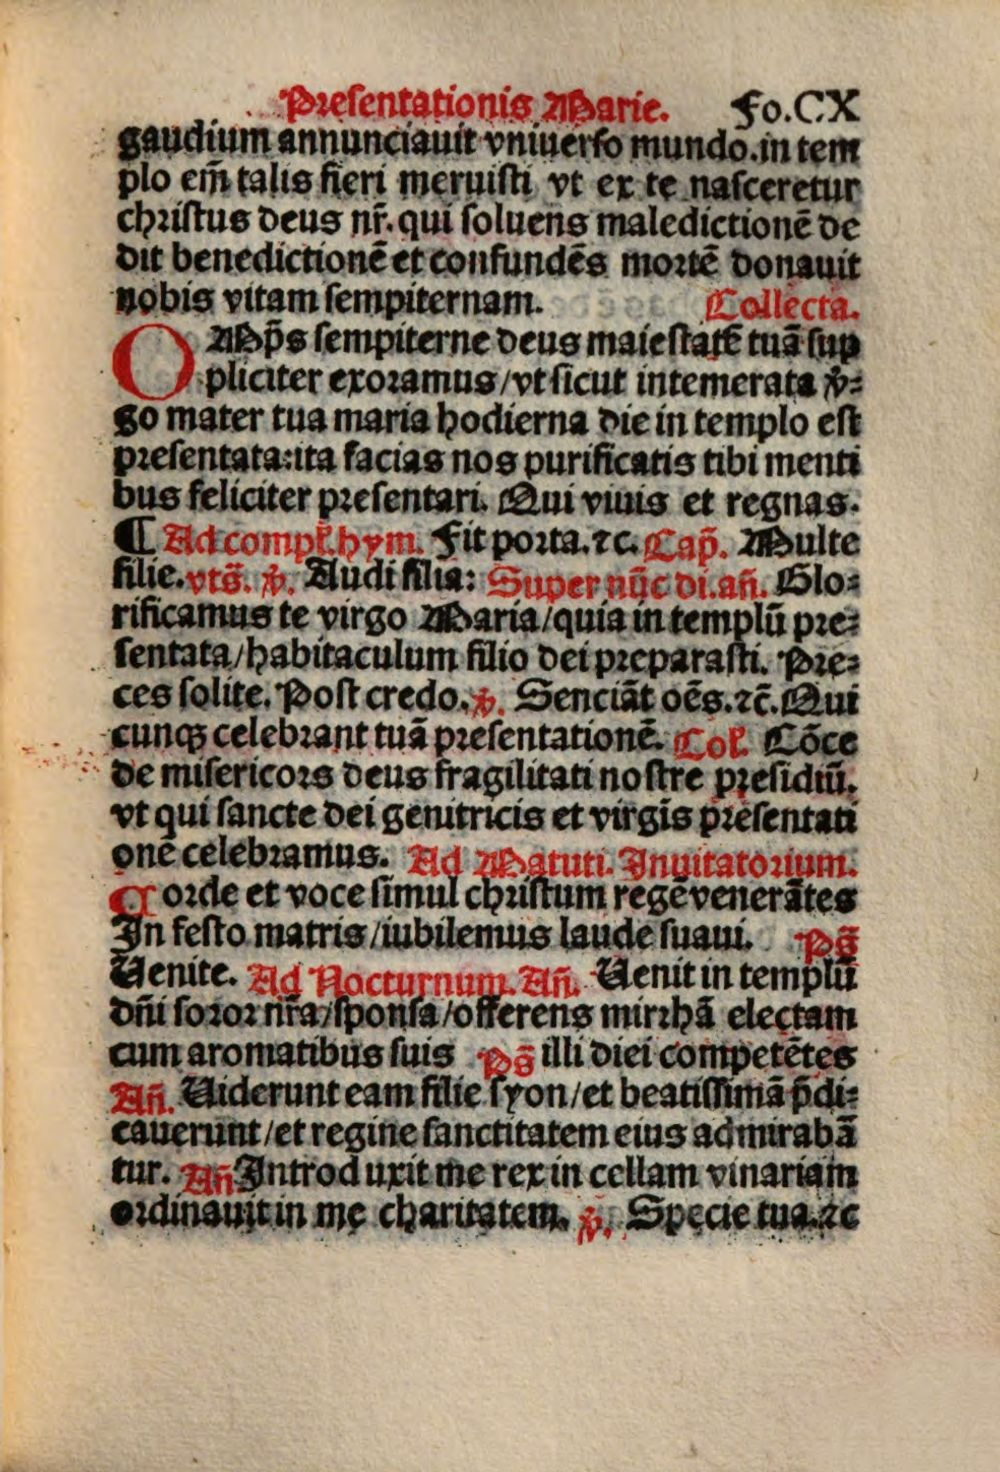 Presentationis Marie. Fo.CX
gaudium annunciauit vniuerso mundo.in tem
plo em̄ talis fieri meruisti vt ex te nasceretur
christus deus nr̄. qui soluens maledictionē de
dit benedictionē et confundēs mortē donauit
nobis vitam sempiternam. Collecta.
OMp̄s sempiterne deus maiestatē tuā sup
pliciter exoramus/vt sicut intemerata v̄-
go mater tua maria hodierna die in templo est
presentata:ita facias nos purificatis tibi menti
bus feliciter presentari. Qui viuis et regnas.
¶ Ad compl̄. hym. Fit porta.⁊c. Cap̄. Multe
filie. vts̄. ℣. Audi filia: Super nūc di.an̄. Glo-
rificamus te virgo Maria/quia in templū pre-
sentata/habitaculum filio dei preparasti. Pre-
ces solite. Post credo. ℣. Senciāt oēs.⁊c̄. Qui
cunqꝫ celebrant tuā presentationē. Col̄. Cōce
de misericors deus fragilitati nostre presidiū.
vt qui sancte dei genitricis et virgīs presentati
onē celebramus. Ad Matuti. Inuitatorium.
Corde et voce simul christum regē venerātes
In festo matris/iubilemus laude suaui. Ps̄
Uenite. Ad Nocturnum. An̄. Uenit in templū
dn̄i soror nr̄a/sponsa/offerens mirrhā electam
cum aromatibus suis Ps̄ illi diei competētes
An̄. Uiderunt eam filie syon/et beatissimā p̄di-
cauerunt/et regine sanctitatem eius admirabā
tur. An̄ Introduxit me rex in cellam vinariam
ordinauit in me charitatem. ℣. Specie tua.⁊c